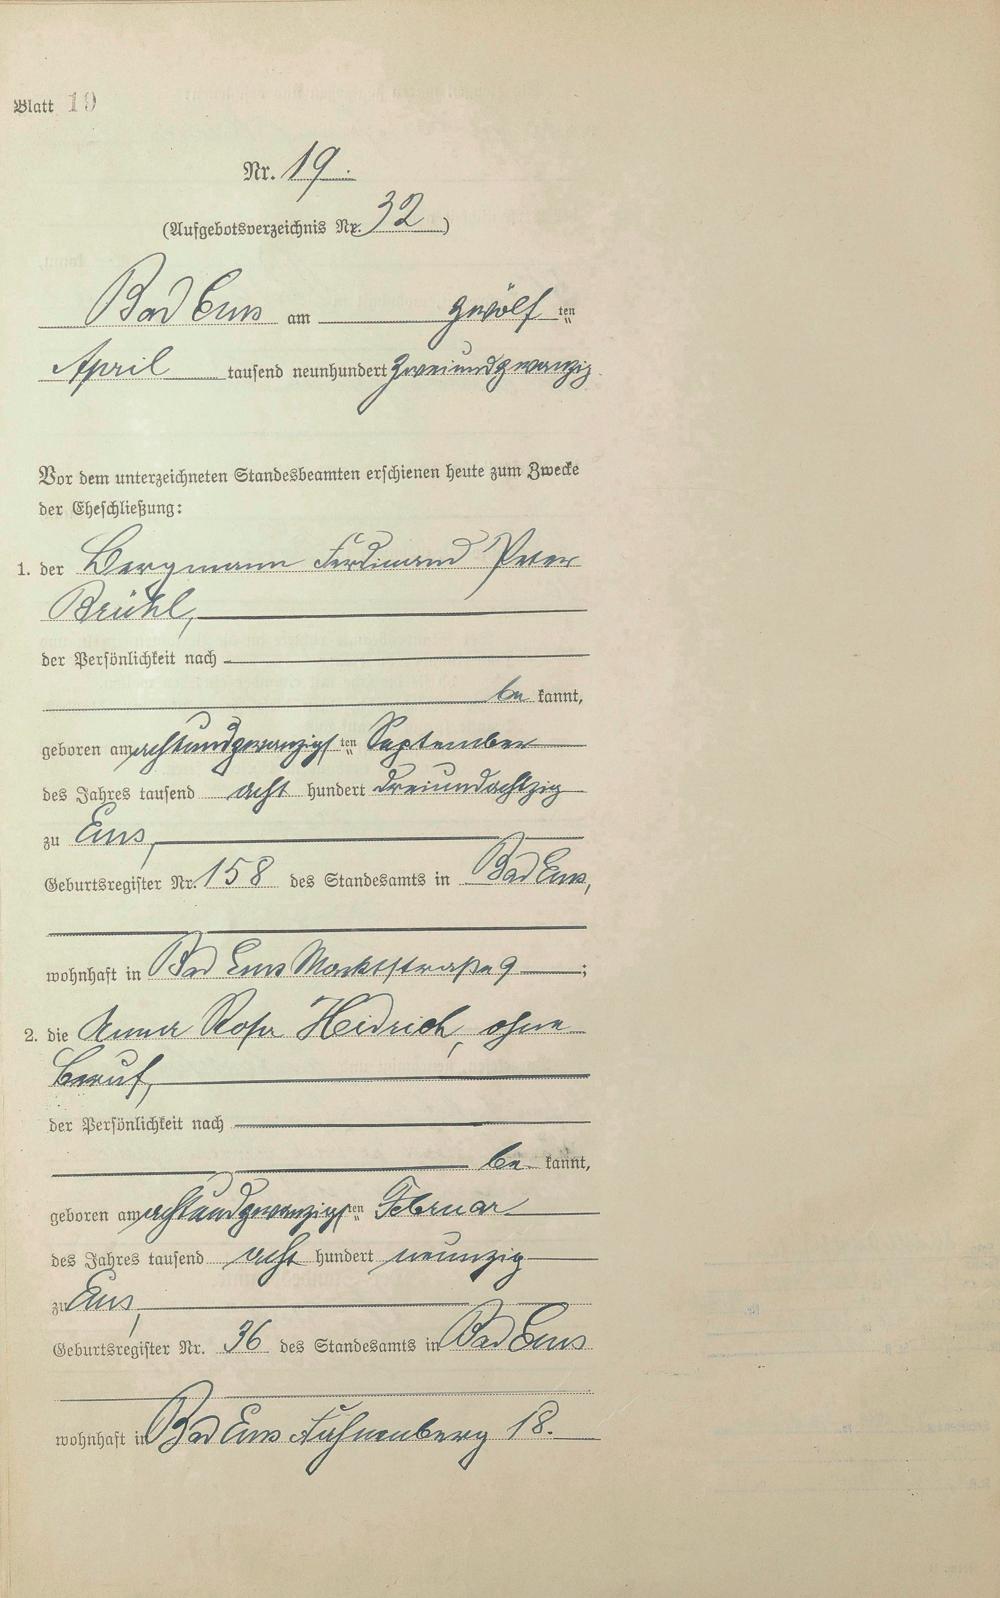 Blatt 19
Nr. 19.
(Aufgebotsverzeichnis Nr. 32)
Bad Ems am zwölf ten
April tausend neunhundert zweiundzwanzig
Vor dem unterzeichneten Standesbeamten erschienen heute zum Zwecke
der Eheschließung:
1. der Bergmann Ferdinand Peter
Brühl,
der Persönlichkeit nach
be kannt,
geboren am achtundzwanzigsten September
des Jahres tausend acht hundert dreiundachtzig
zu Ems,
Geburtsregister Nr. 158 des Standesamts in Bad Ems,
wohnhaft in Bad Ems Marktstraße 9 ;
2. die Anna Rosa Heidrich, ohne
Beruf,
der Persönlichkeit nach
be kannt,
geboren am achtundzwanzigsten Februar
des Jahres tausend acht hundert neunzig
zu Ems,
Geburtsregister Nr. 36 des Standesamts in Bad Ems
wohnhaft in Bad Ems 18.